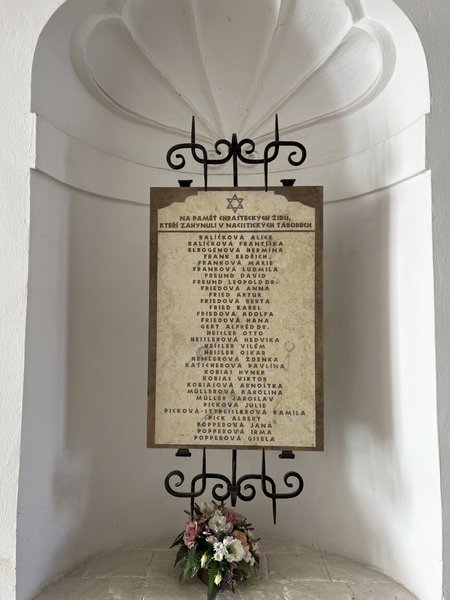 NA PAMĚŤ CHRASTECKÝCH ŽIDŮ,
KTEŘÍ ZAHYNULI V NACISTICKÝCH TÁBORECH
BALÍČKOVÁ ALICE
BALÍČKOVÁ FRANTIŠKA
ELBOGENOVÁ HERMÍNA
FRANK BEDŘICH
FRANKOVÁ MARIE
FRANKOVÁ LUDMILA
FREUND DAVID
FREUND LEOPOLD DR.
FRIEDOVÁ ANNA
FRIED ARTUR
FRIEDOVÁ BERTA
FRIED KAREL
FRIEDOVÁ ADOLFA
FRIEDOVÁ HANA
GERT ALFRÉD DR.
HEISLER OTTO
HEISLEROVÁ HEDVIKA
HEISLER VILÉM
HEISLER OSKAR
HEISLEROVÁ ZDEŇKA
KATSCHEROVÁ PAVLÍNA
KOBIAS HYNEK
KOBIAS VIKTOR
KOBIASOVÁ ARNOŠTKA
MÜLLEROVÁ KAROLINA
MÜLLER JAROSLAV
PICKOVÁ JULIE
PICKOVÁ-STREISLEROVÁ KAMILA
PICK ALBERT
POPPEROVÁ JANA
POPPEROVÁ IRMA
POPPEROVÁ GISELA